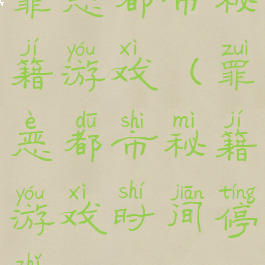 罪恶都市秘
jí yóu xì zuì
籍游戏（罪
è dū shì mì jí
恶都市秘籍
yóu xì shí jiān tíng
游戏时间停
zhǐ